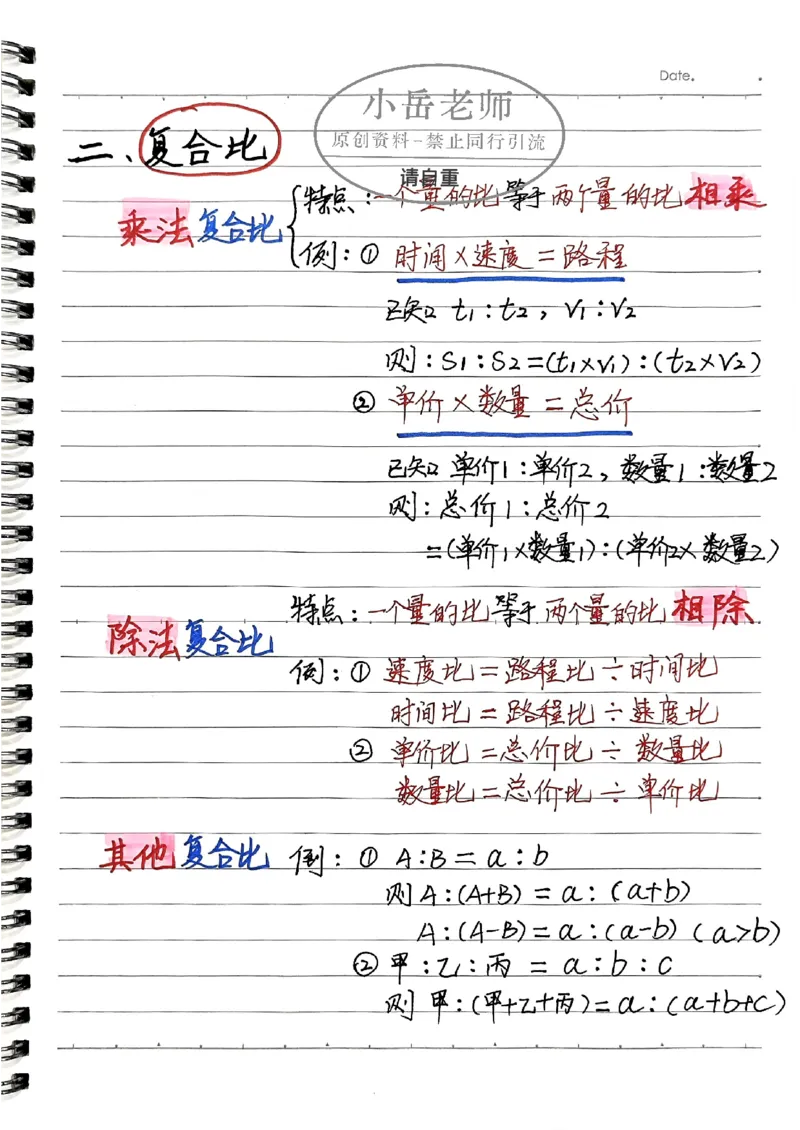 Date.
小岳老师
原创资料-禁止同行引流
请自重
二、复合比
乘法复合比
特点:一个量的比等于两个量的比相乘
例:① 时间×速度=路程
已知 t1:t2, V1:V2
则:S1:S2=(t1×V1):(t2×V2)
② 单价×数量=总价
已知 单价1:单价2, 数量1:数量2
则:总价1:总价2
=(单价1×数量1):(单价2×数量2)
除法复合比
特点:一个量的比等于两个量的比相除
例:① 速度比=路程比÷时间比
时间比=路程比÷速度比
② 单价比=总价比÷数量比
数量比=总价比÷单价比
其他复合比 例:① A:B=a:b
则A:(A+B)=a:(a+b)
A:(A-B)=a:(a-b)(a>b)
② 甲:乙:丙=a:b:c
则 甲:(甲+乙+丙)=a:(a+b+c)